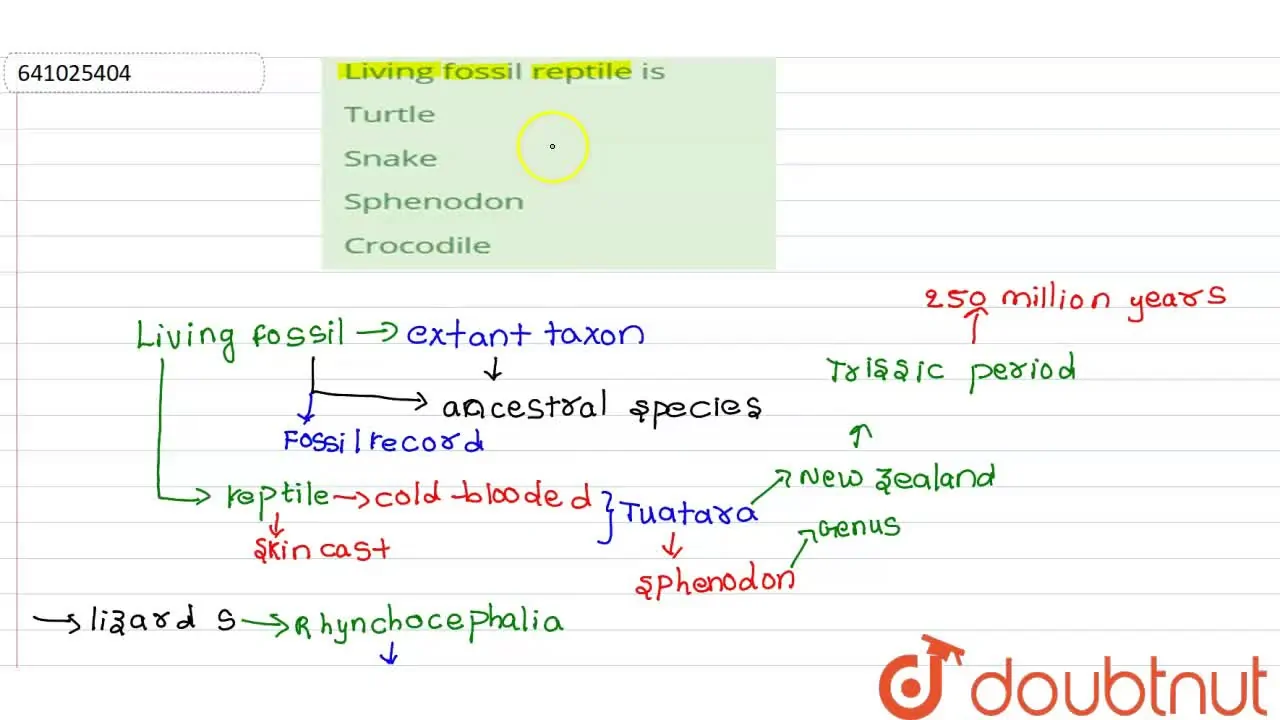 641025404
Living fossil reptile is
Turtle
Snake
Sphenodon
Crocodile
250 million years
Living fossil → extant taxon
Trissic period
ancestral species
Fossil record
reptile → cold-blooded } Tuatara
New Zealand
Skin cast
Genus
Sphenodon
→ lizard s → Rhynchocephalia
doubtnut